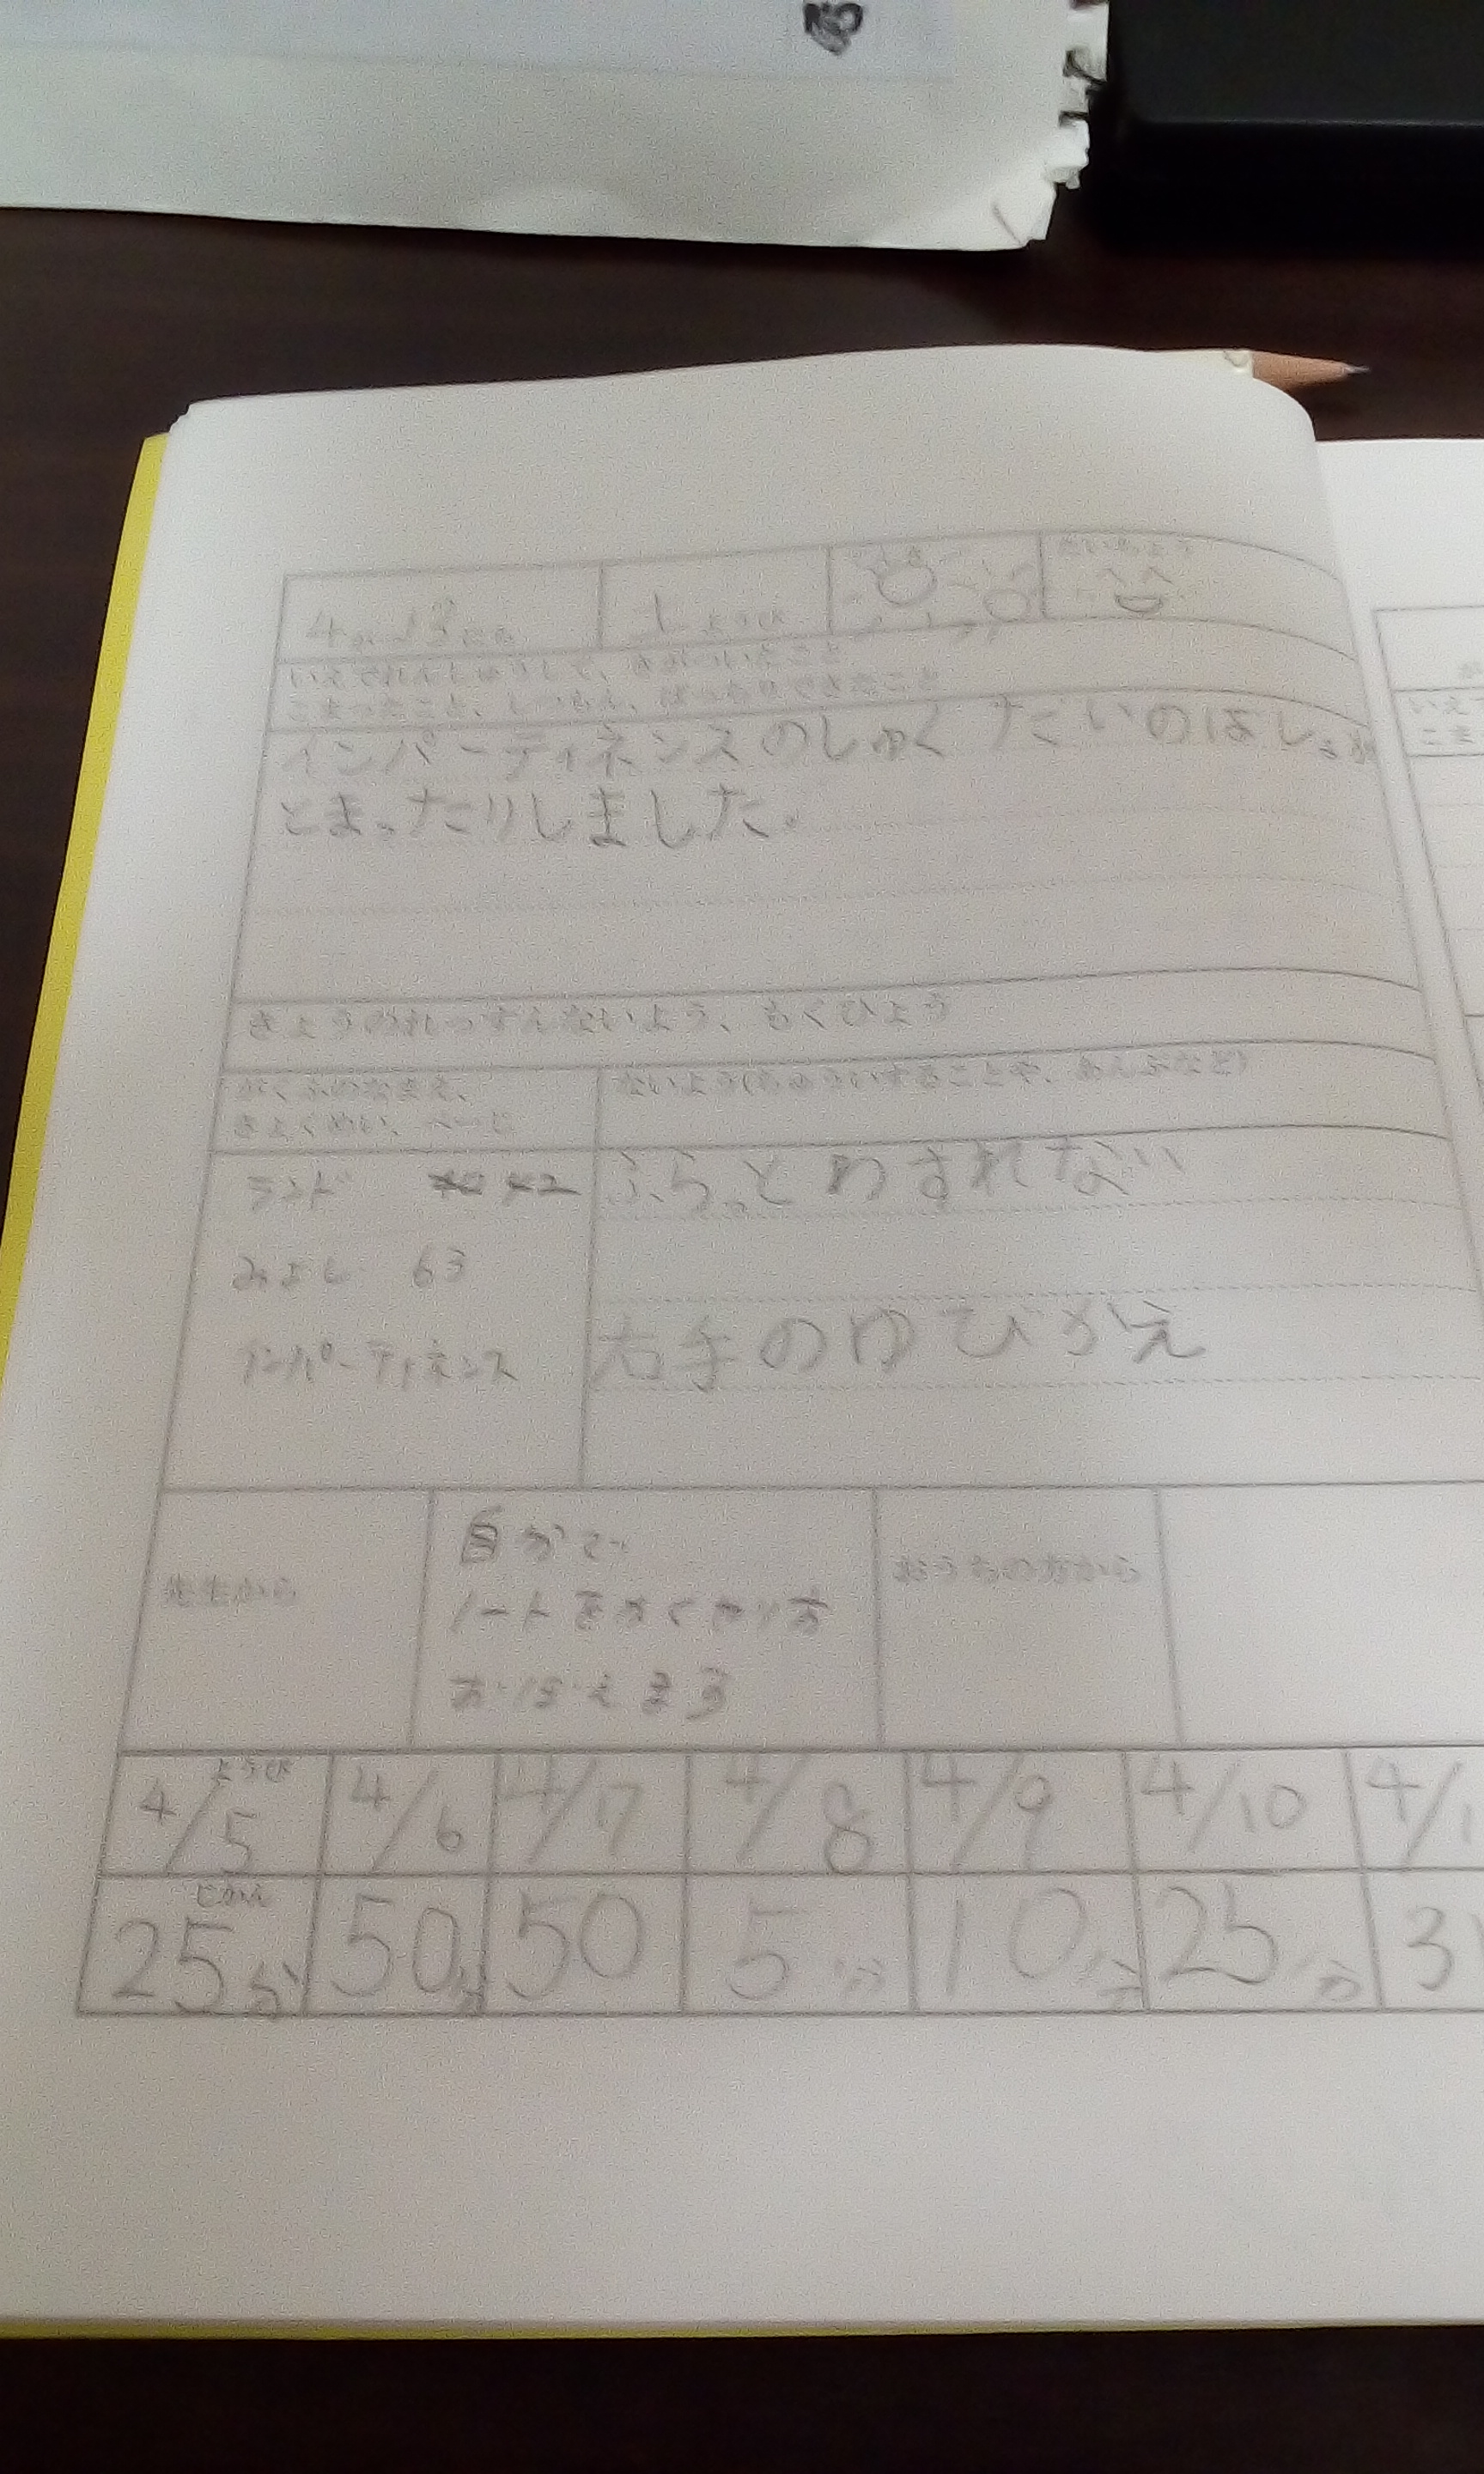 いえでれんしゅうして、きがついたこと
こまったこと、しつもん、ばっちりできたこと
インパーティネンスのしゅくだいのばしょが
とまったりしました。
きょうのれっすんないよう、もくひょう
がくふのなまえ、
きょくめい、ぺーじ
ないよう(ちゅういすることや、あんぷなど)
ランド
ふらっとわすれない
みよし 63
インパーティネンス
右手のゆびかえ
先生から
自分で
ノートをかくやり方
おぼえよう
おうちの方から
ようび
4/5 4/6 4/7 4/8 4/9 4/10
じかん
25分 50分 50 5分 10分 25分